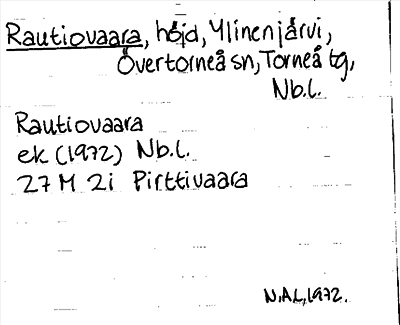 Rautiovaara, höjd, Ylinenjärvi,
Övertorneå sn, Torneå tg,
Nb.l.
Rautiovaara
ek (1972) Nb.l.
27 M 2i Pirttivaara
N.A.L, 1972.